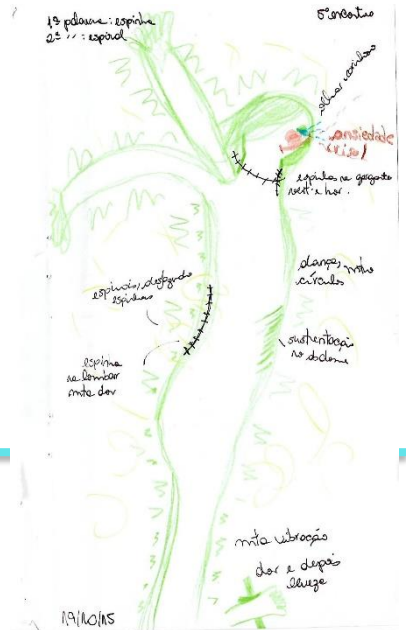 1ª palavra: espinha
2ª  " : espiral
5º encontro
olhar caminhos
ansiedade
(riso)
espinhos na garganta
vert. e hor.
dança, mto
círculos
espirais, desfazendo
espinhos
sustentação
no abdome
espinha
na lombar
mta dor
mta vibração
dor e depois
leveza
19/10/15